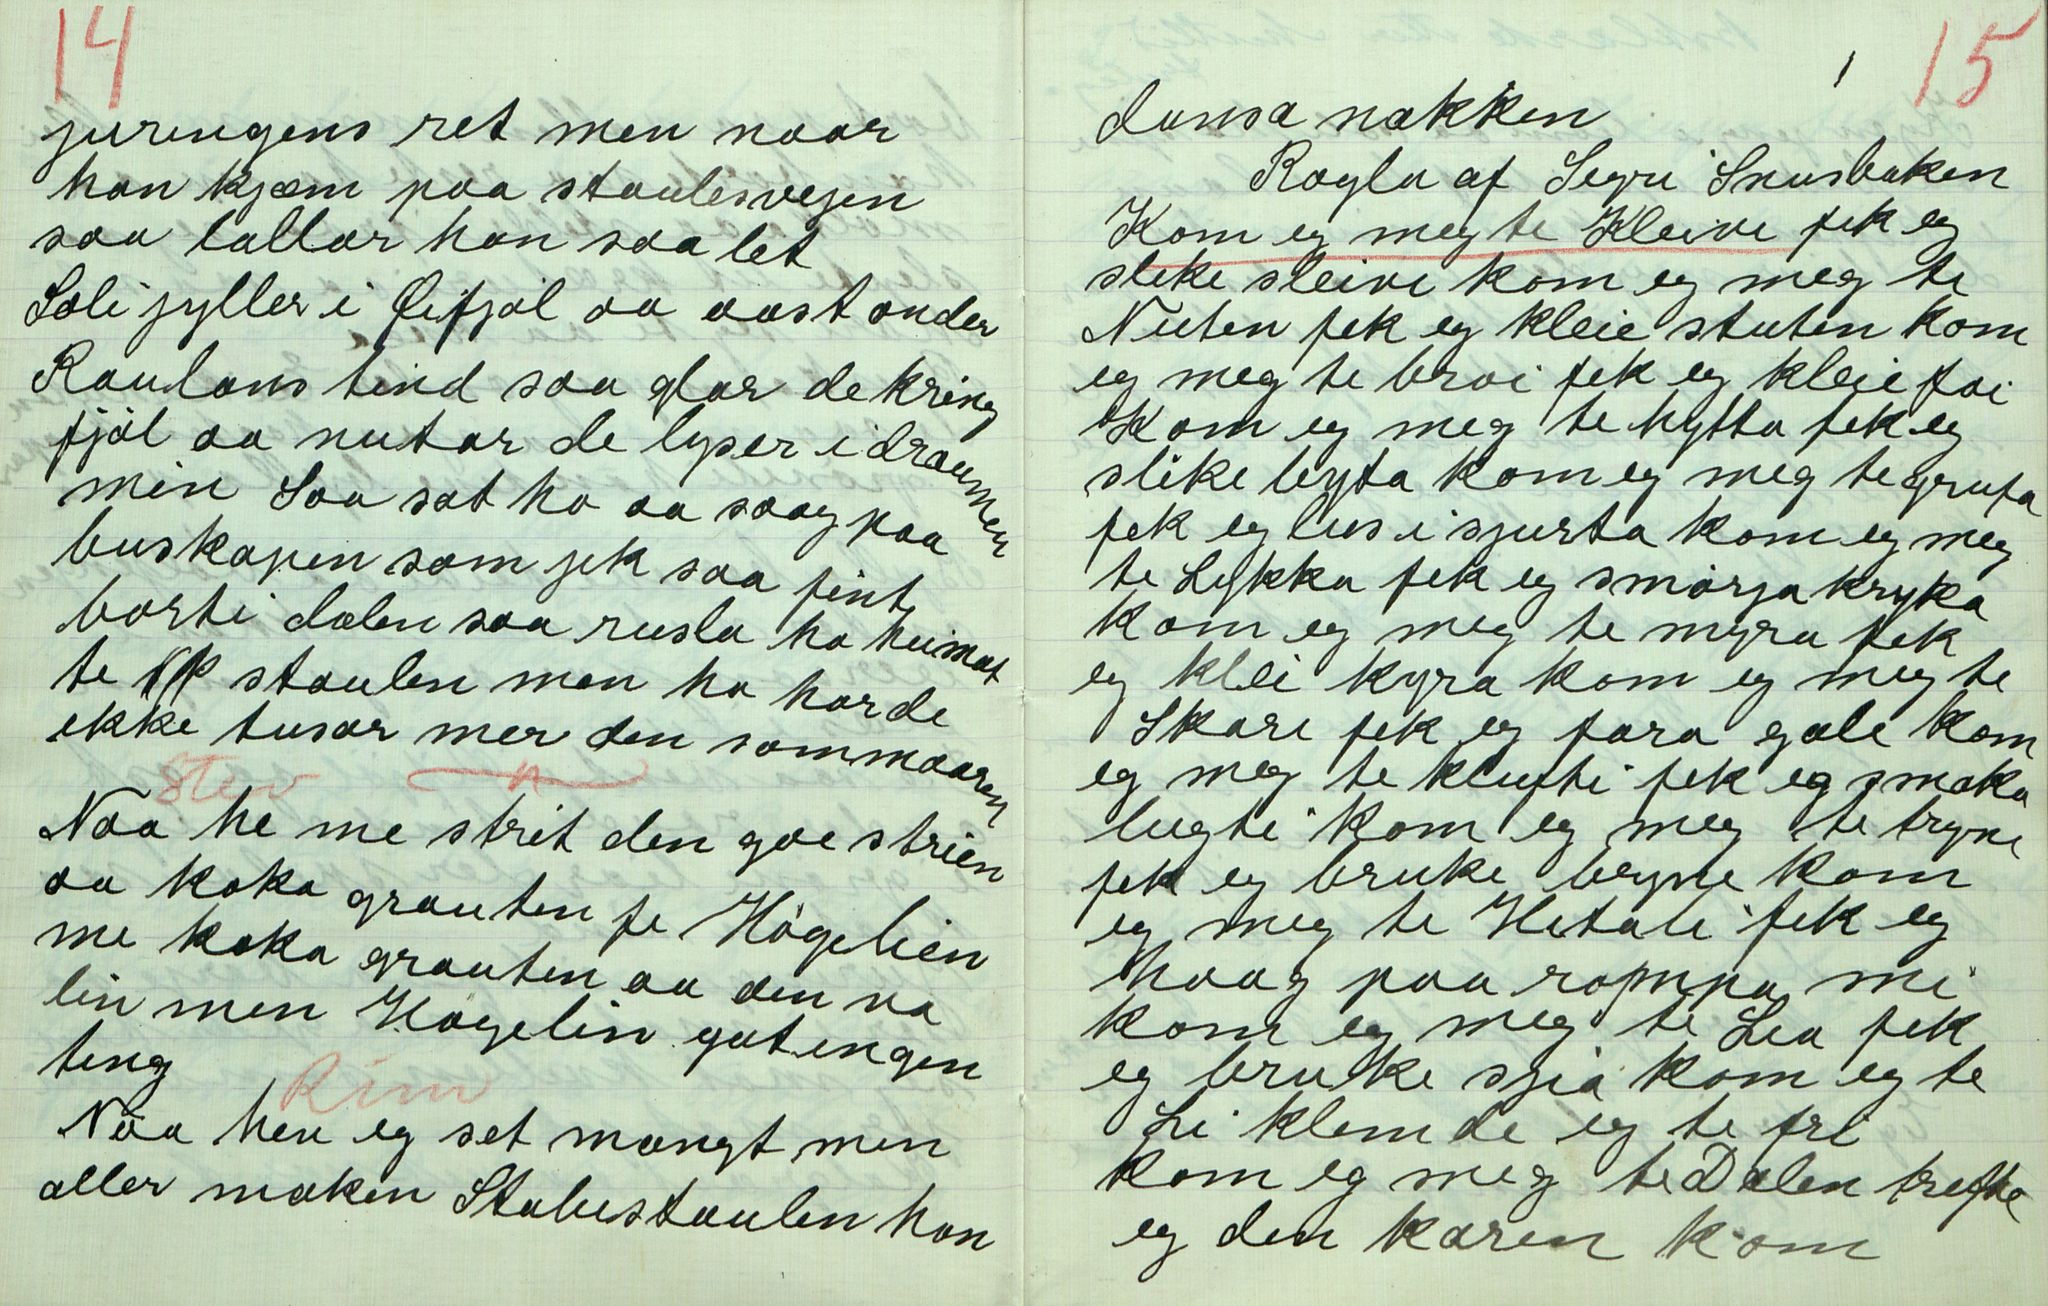 14
juringens ret men naar
han kjæm paa staulesvegen
saa lallar han saa let
Soli gyller i Øifjøl aa aast onder
Raulans tind saa glar de kring
fjøl aa nutar de lyser i draumen
min Saa sat ho aa saag paa
buskapen som jek saa fint
borti dalen saa rusla ho heimat
te staulen men ho horde
ikke tusar mer den sommaaren
Stev
Naa he me strit den goe strien
aa koka grauten fe Högelien
me koka grauten aa den va
lin men Högelin gat engen
ting
Rim
Naa heu eg set mangt men
aller maken Stalestaulen han
15
dansa nakken
Rogla af Segri Snusbaken
Kom eg meg te Kleivi fek eg
slike sleive kom eg meg te
Nuten fek eg kleie stuten kom
eg meg te broi fek eg kleie foi
Kom eg meg te hytta fek eg
slike byta kom eg meg te grufa
fek eg lus i sjurta kom eg meg
te Lykka fek eg smörja kryka
kom eg meg te myra fek
eg klei kyra kom eg meg te
Skare fek eg fara gale kom
eg meg te klufti fek eg smaka
lugti kom eg meg te tryne
fek eg bruke bryne kom
eg meg te Hetali fek eg
haag paa rompa mi
kom eg meg te Lia fek
eg bruke sjia kom eg te
Li klemde eg te fri
kom eg meg te Dalen trefte
eg den karen kom